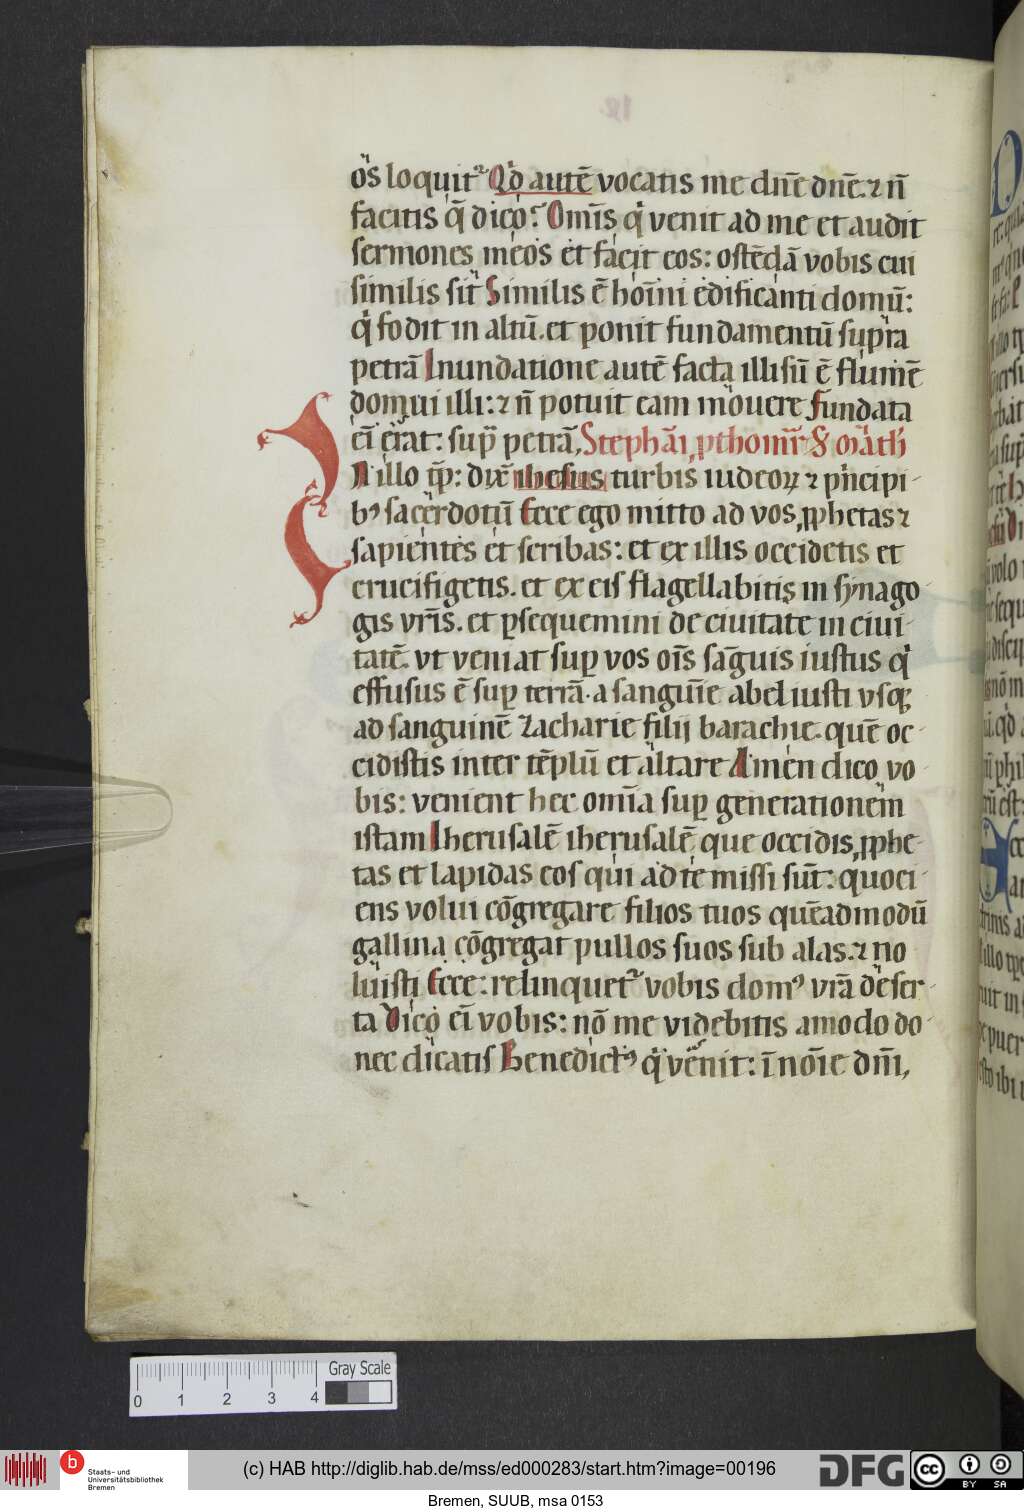 os loquit᷑ Qd̾ autē vocatis me dn̄e dn̄e. ⁊ n̄
facitis q̄ dico? Om̄is qͥ venit ad me et audit
sermones meos et facit eos: ostēdā vobis cui
similis sit Similis ē hoī̄ni edificanti domū:
qͥ fodit in altū. et ponit fundamentū supra
petrā Inundatione autē facta illisū ē flumē
domui illi: ⁊ n̄ potuit eam mouere Fundata
eī erat: supͣ petrā, Stephāi, ꝓthom̄r̄ S maͣth
In illo tp̄: dix̄ ihesus turbis iudeoꝝ ⁊ pͥncipi-
bꝰ sacerdotū Ecce ego mitto ad vos, ꝓphetas ⁊
sapientes et scribas: et ex illis occidetis et
crucifigetis. et ex eis flagellabitis in synago-
gis vrīs. et ꝑsequemini de ciuitate in ciui-
tatē. vt veniat suꝑ vos oīs sāguis iustus qͥ
effusus ē suꝑ terrā. a sanguīe abel iusti vsqꝫ
ad sanguinē zacharie filij barachie. quē oc-
cidistis inter tēplū et altare Amen dico vo
bis: venient hec omīa suꝑ generationem
istam Iherusalē iherusalē que occidis, ꝓphe-
tas et lapidas eos qui ad te missi sūt: quoci-
ens volui cōgregare filios tuos quēadmodū
gallina cōgregat pullos suos sub alas. ⁊ no
luisti Ecce: relinquet᷑ vobis domꝰ vrā deser-
ta Dico eī vobis: nō me videbitis amodo do-
nec dicatis Benedictꝰ qͥ venit: ī noīe dnī,
0 1 2 3 4
Gray Scale
b
Staats- und
Universitätsbibliothek
Bremen
(c) HAB http://diglib.hab.de/mss/ed000283/start.htm?image=00196
DFG
cc BY SA
Bremen, SUUB, msa 0153